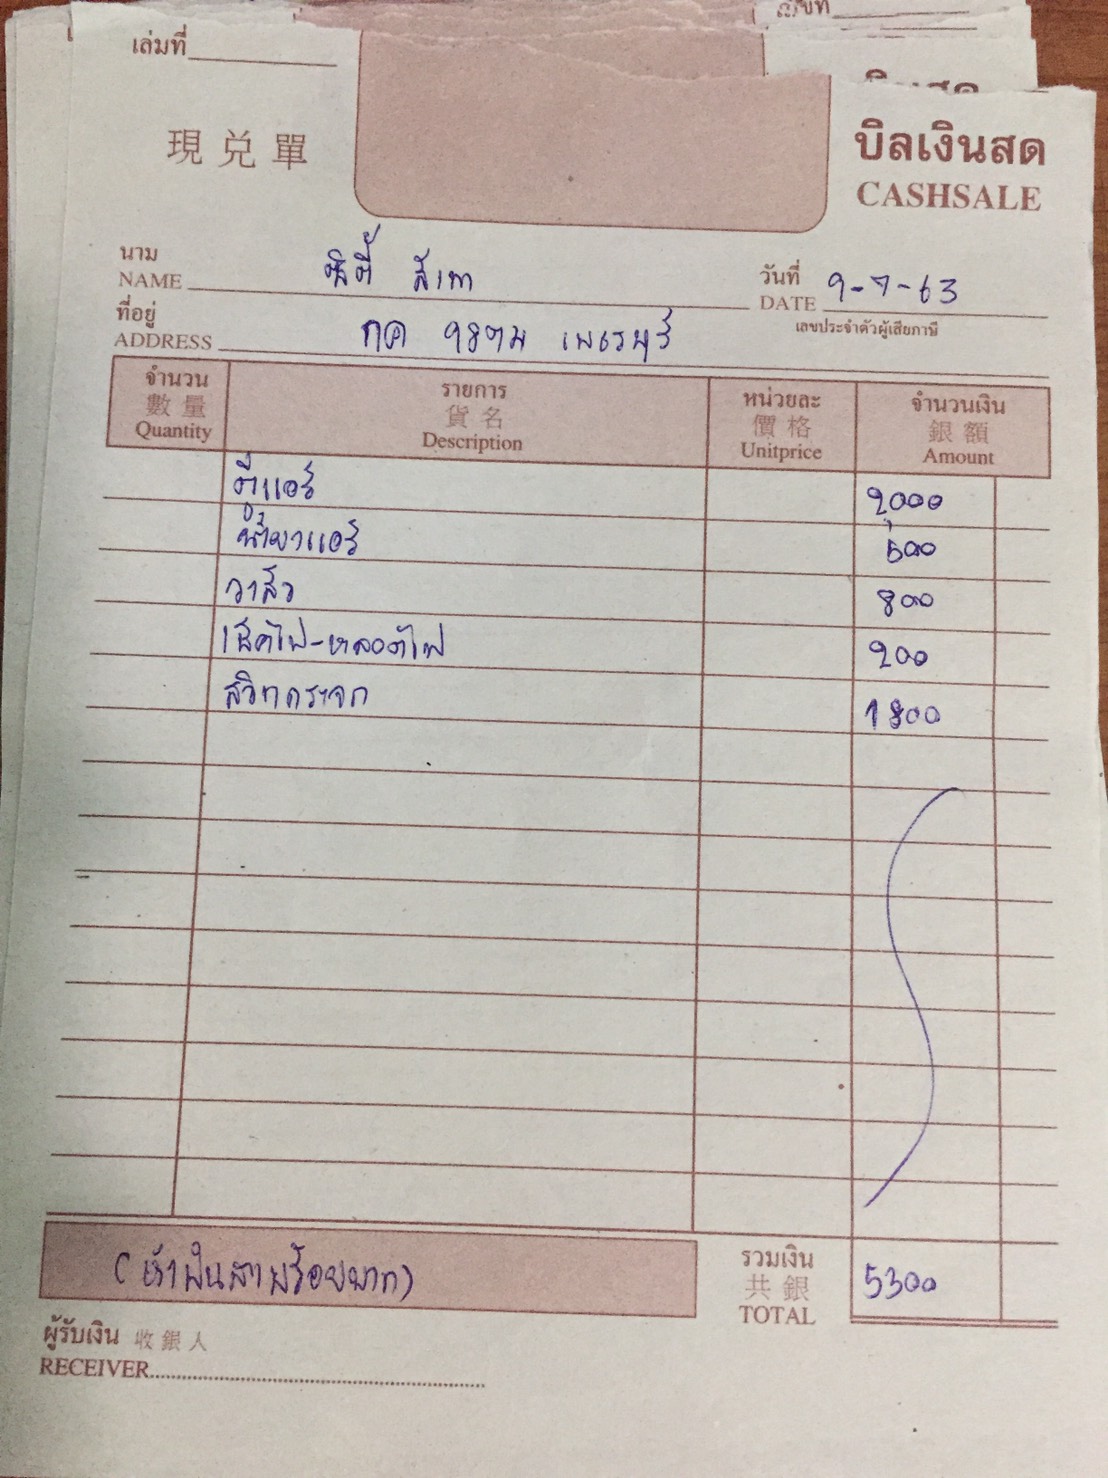 เลขที่
เล่มที่
現兑單
บิลเงินสด
CASHSALE
นาม
NAME
วันที่
DATE 9-7-63
ที่อยู่
ADDRESS
เลขประจำตัวผู้เสียภาษี
จำนวน รายการ หน่วยละ จำนวนเงิน
數量 貨名 價格 銀額
Quantity Description Unitprice Amount
ตู้แอร์ 2000
น้ำยาแอร์ 500
วาล์ว 800
เช็คไฟ-หลอดไฟ 200
สวิทกระจก 1800
(ห้าพันสามร้อยบาท)
รวมเงิน
共銀
TOTAL
5300
ผู้รับเงิน 收銀人
RECEIVER